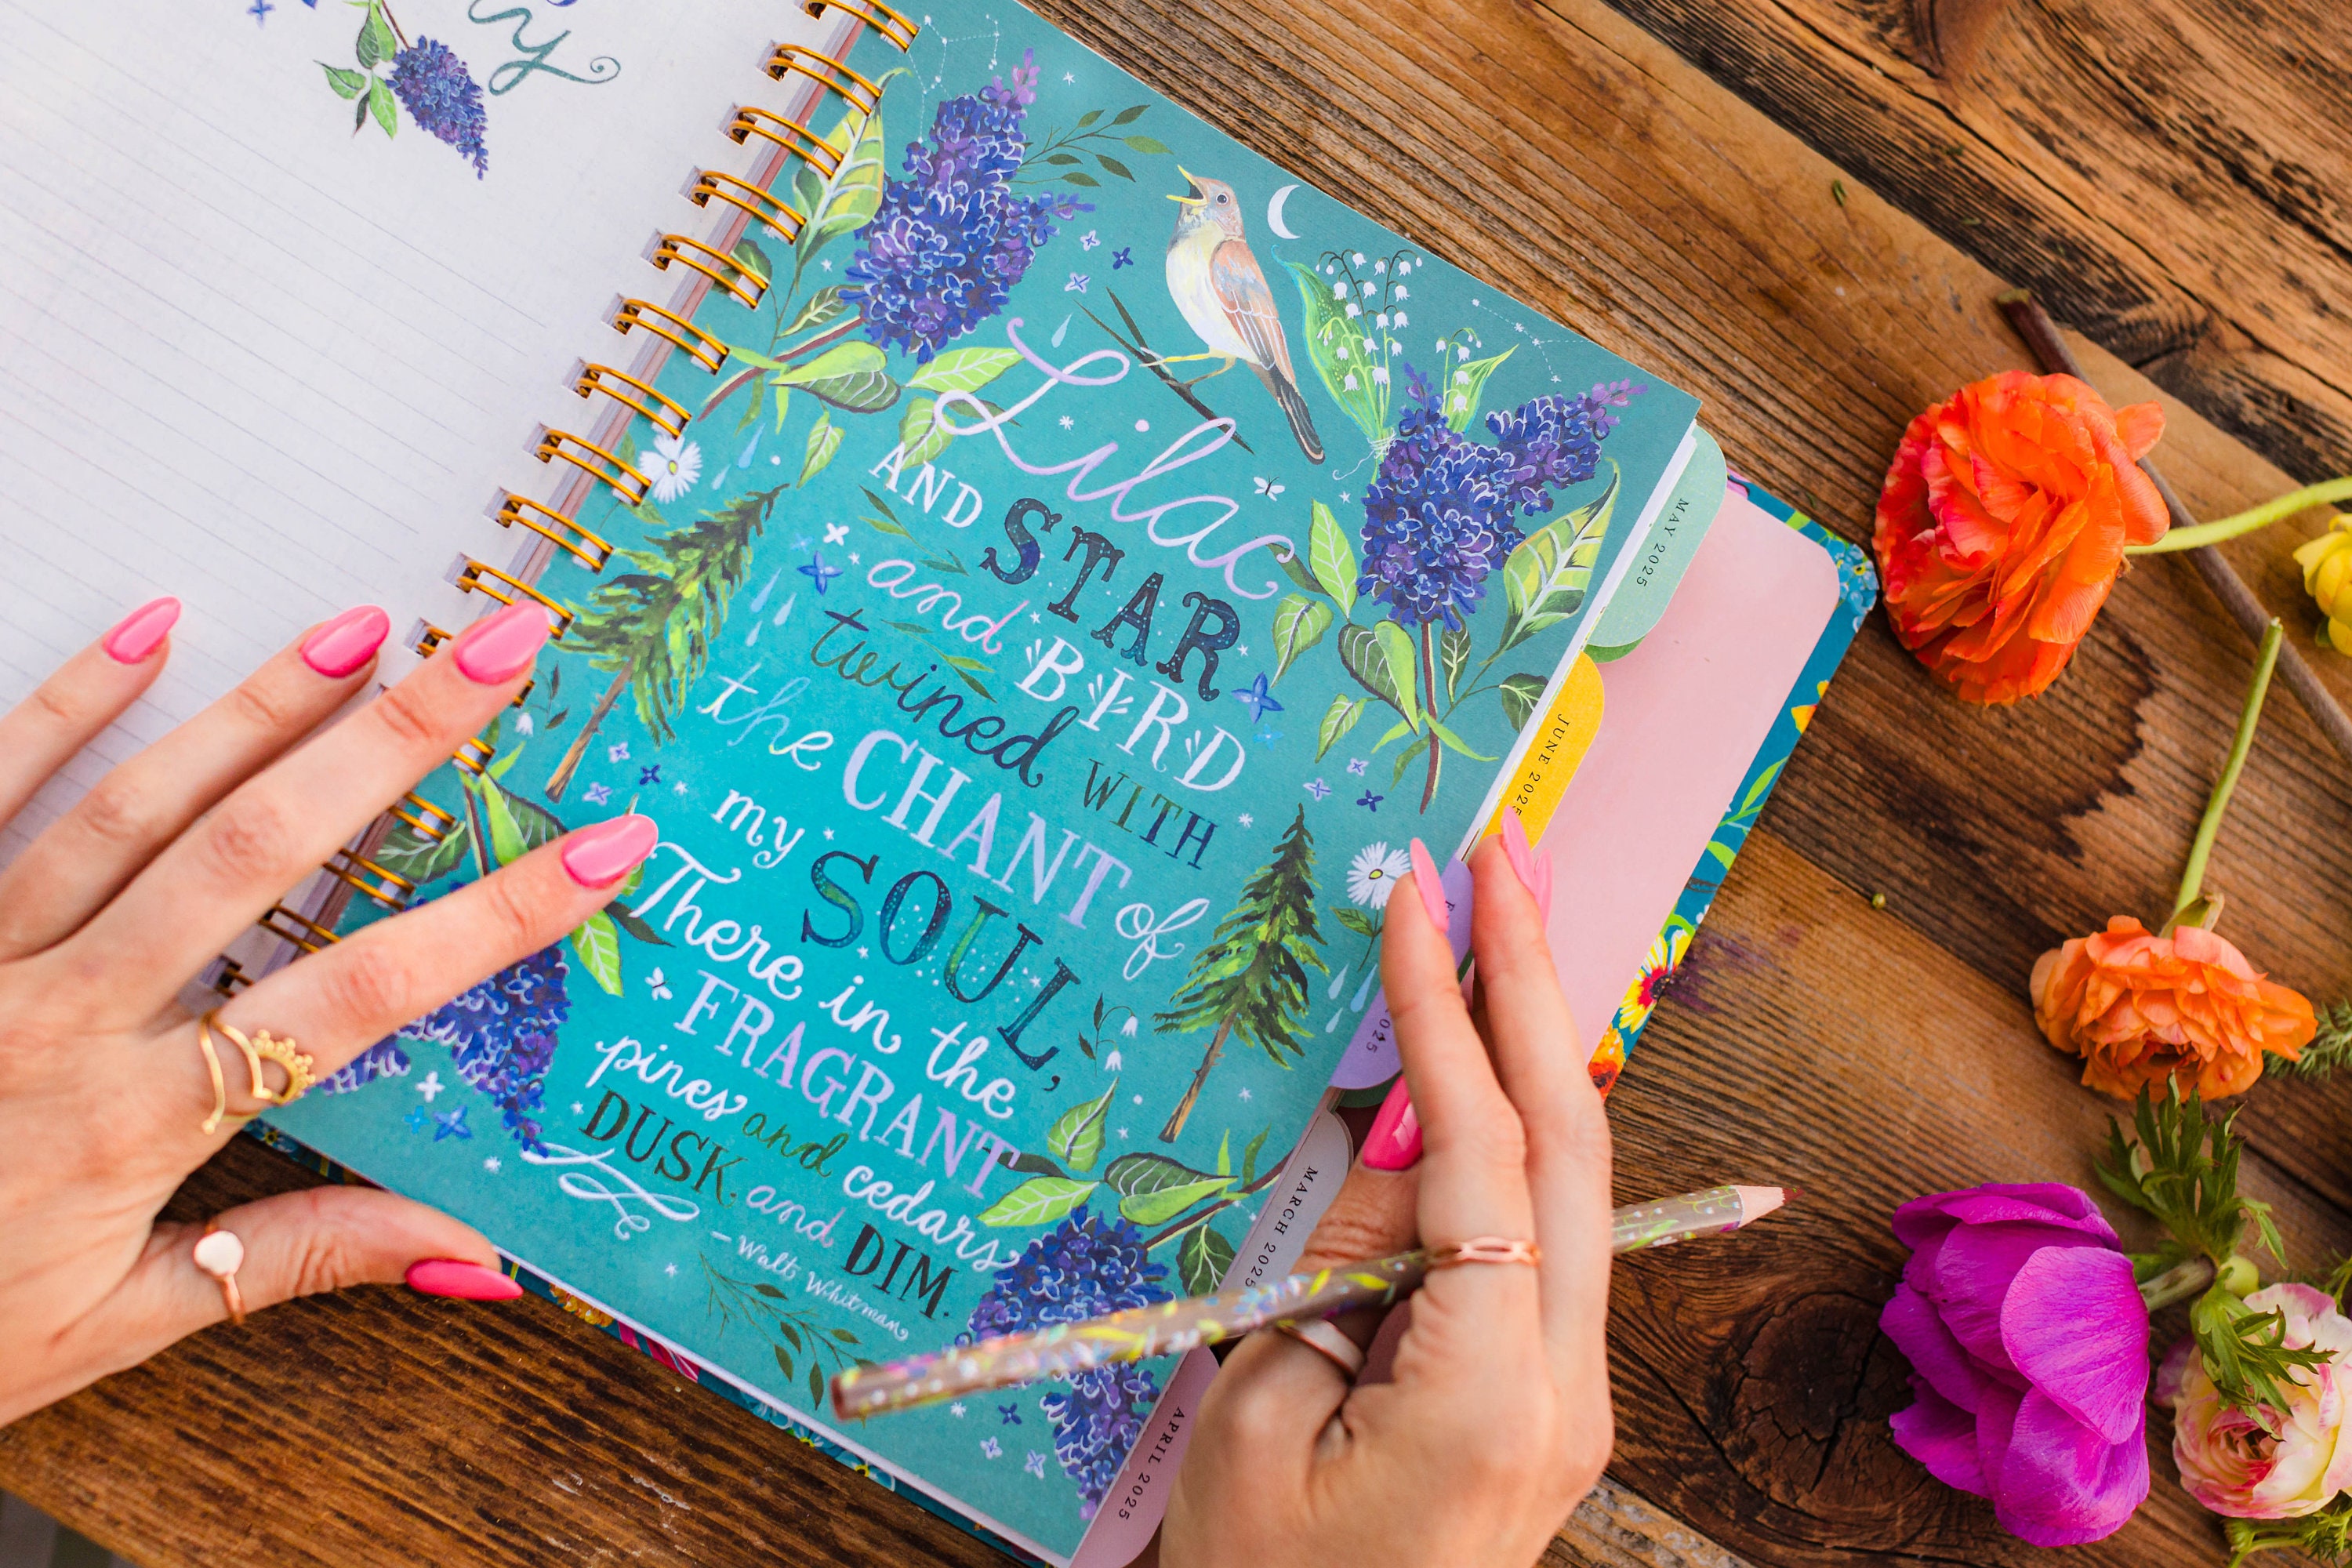 Lilac
AND STAR
and BIRD
twined WITH
the CHANT of
my SOUL,
There in the
FRAGRANT
pines and cedars
DUSK and DIM.
- Walt Whitman
MAY 2025
JUNE 2025
MARCH 2025
APRIL 2025